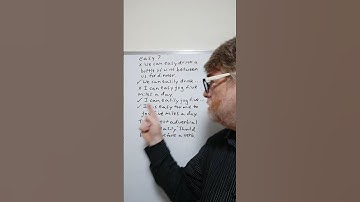 easy?
x We can easy drive a
bottle of wine between
us for dinner.
✓ We can easily drive...
x I can easy jog five
miles a day.
✓ I can easily jog five
✓ It is easy for me to
jog five miles a day.
adverbial
should
before a verb